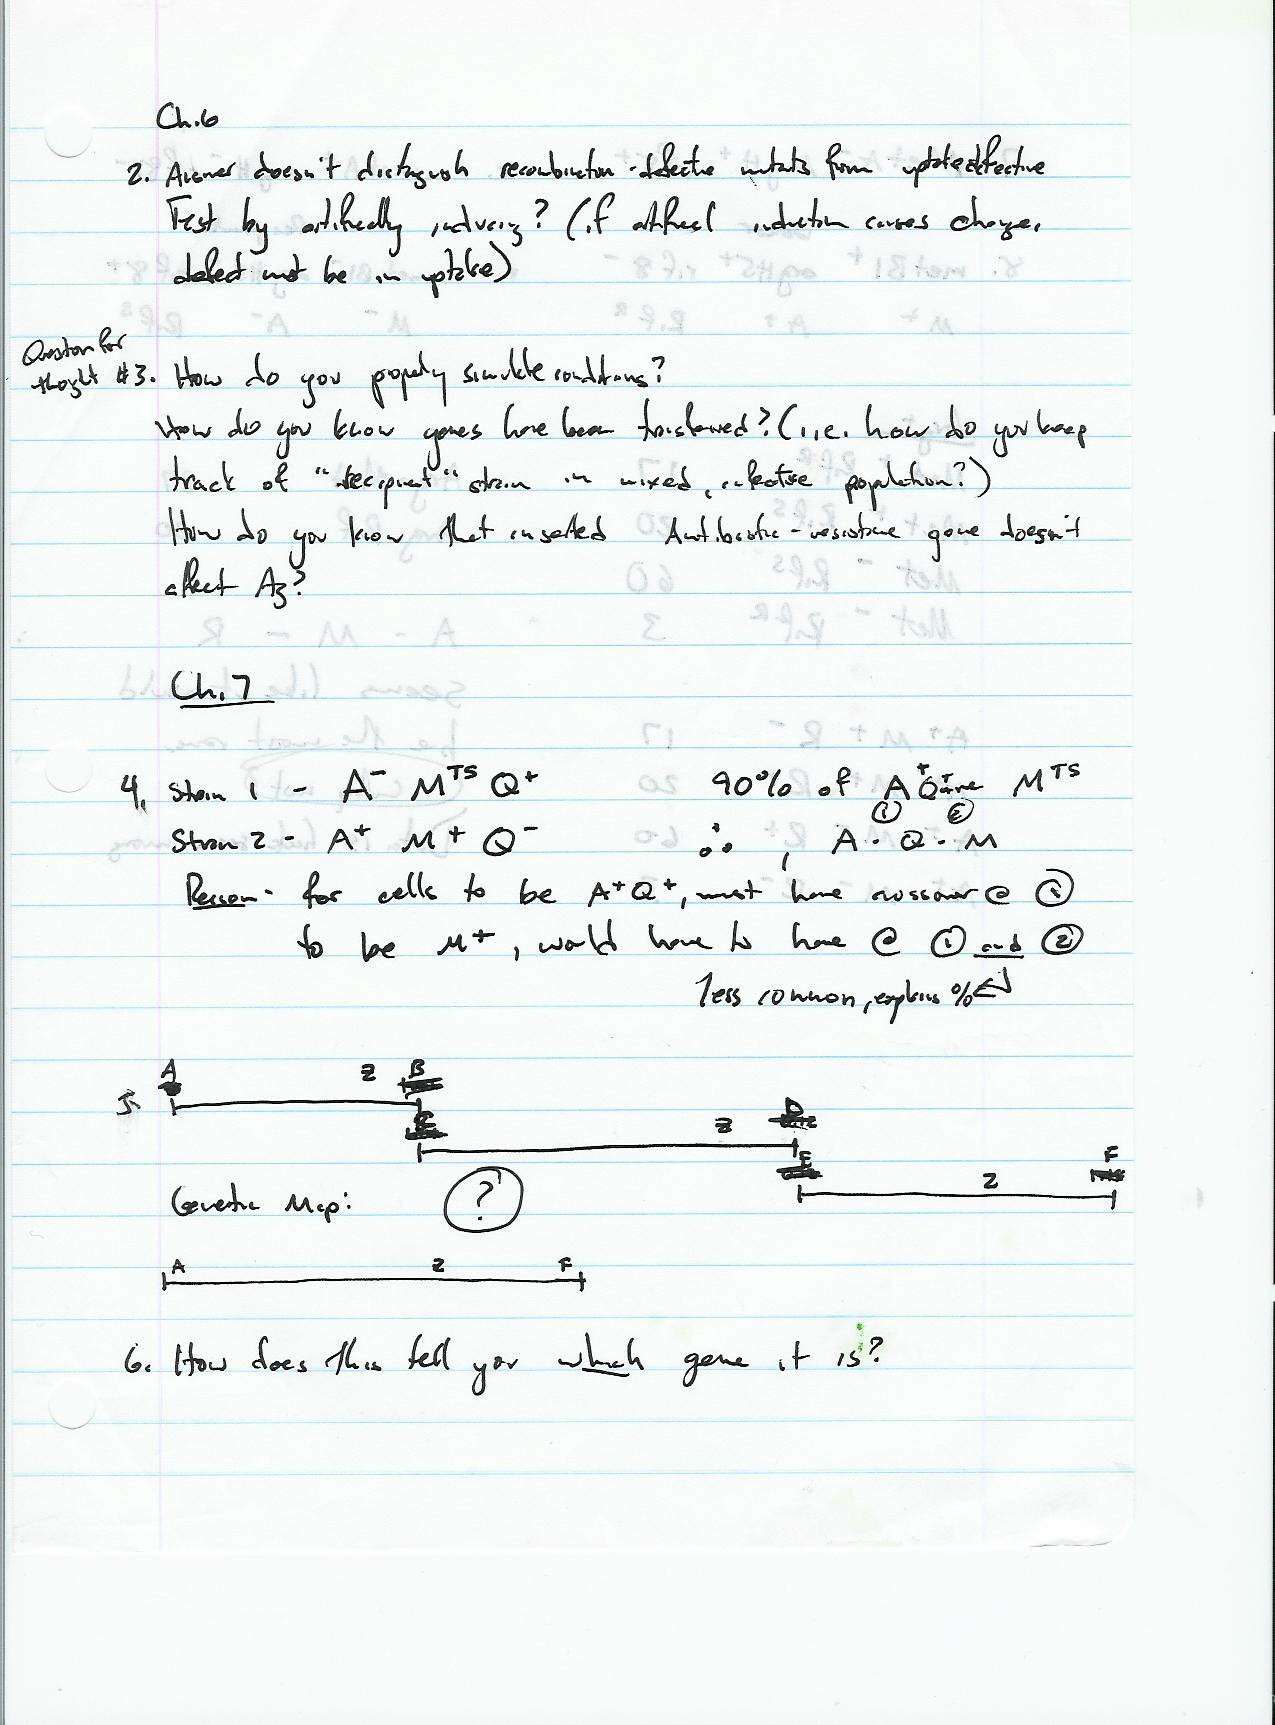 Ch.6
2. Answer doesn't distinguish recombination-defective mutants from uptake defective
Test by artificially inducing? (if artificial induction causes change,
defect must be in uptake)
Question for
thought #3. How do you properly simulate conditions?
How do you know genes have been transferred? (i.e. how do you keep
track of "recipient" strain in mixed, population?)
How do you know that inserted Antibiotic-resistance gene doesn't
affect Az?
Ch.7
4. Strain 1 - A⁻ M^TS Q⁺ 90% of A⁺ Q⁺ are M^TS
Strain 2 - A⁺ M⁺ Q⁻ ∴, A ① Q ② M
Reason - for cells to be A⁺Q⁺, must have crossover @ ①
to be M⁺, would have to have @ ① and ②
less common, explains %
A Z B
5.
C Z D
E Z F
Genetic Map: ?
A Z F
6. How does this tell you which gene it is?